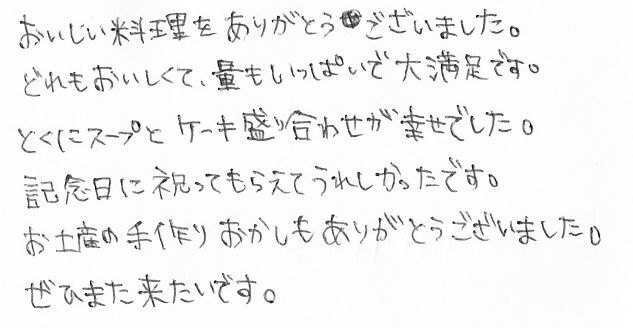 おいしい料理をありがとうございました。
どれもおいしくて、量もいっぱいで大満足です。
とくにスープとケーキ盛り合わせが幸せでした。
記念日に祝ってもらえてうれしかったです。
お土産の手作りおかしもありがとうございました。
ぜひまた来たいです。